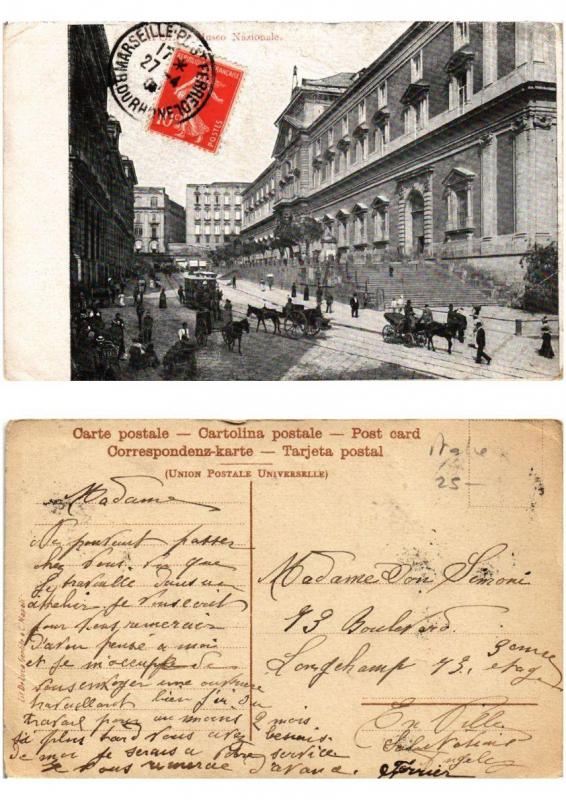 Museo Nazionale.
MARSEILLE-PL. ST FERREOL
17
27
BOUCHES DU RHONE
REPUBLIQUE FRANCAISE
10
POSTES
Carte postale — Cartolina postale — Post card
Correspondenz-karte — Tarjeta postal
(UNION POSTALE UNIVERSELLE)
Italie
25-
Madame
Ne pouvant passer
chez vous. vu que
Je travaille dans un
atelier je vous ecrit
pour vous remercier
D'avoir pensé a moi
et je m'occupe de
vous envoyer une ouvriere
travaillant bien j'ai du
travail pour au moins 2 mois
si plus tard vous avez besoin
de moi je serais a votre service
Je vous remercie d'avance.
Madame Don Simoni
73 Boulevard
Longchamp 73. 3eme etage
En Ville